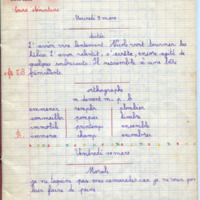 Cours élémentaire
Mercredi 9 mars
Dictée
L'avion vire lentement. Nicole voit tourner les
hélices. L'avion ralentit, s'arrête, encore agité de
quelques soubresauts. Il ressemble à une bête
frémissante.
orthographe
m devant m. p. b
emmener remplir plomber
emmeillé pompier
immobile printemps ensemble
emmener champ
Vendredi 11 mars
Morale
je ne taquine pas mes camarades car je ne veux pas
leur faire de peine